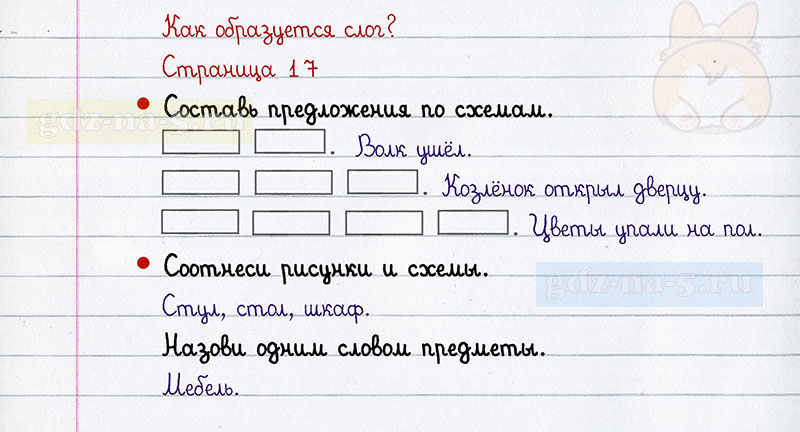 Как образуется слог?
Страница 17
• Составь предложения по схемам.
. Волк ушёл.
. Козлёнок открыл дверцу.
. Цветы упали на пол.
• Соотнеси рисунки и схемы.
gdz-na-5.ru
Стул, стол, шкаф.
Назови одним словом предметы.
Мебель.
gdz-na-5.ru